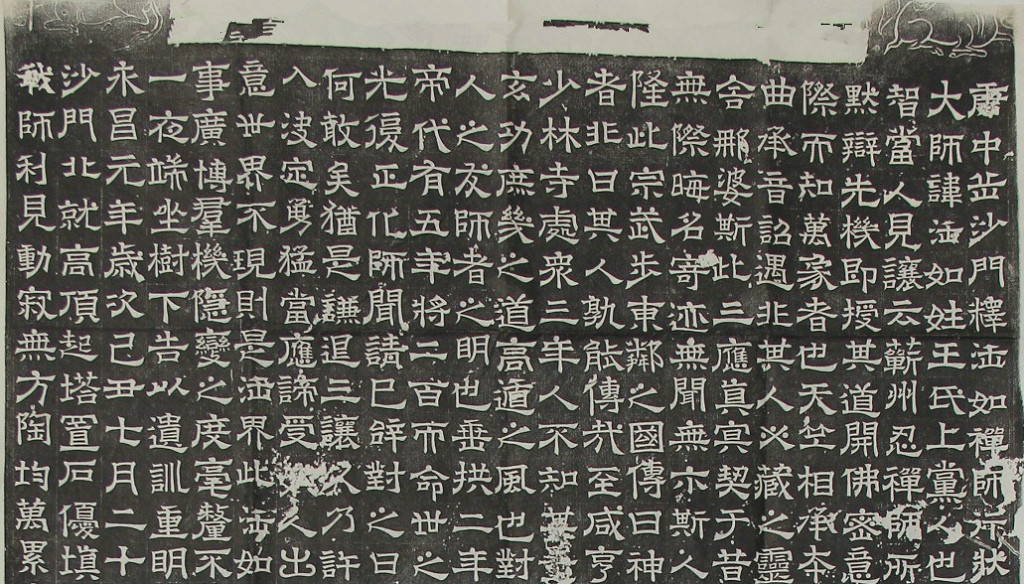 中岳沙門釋法如禪師行狀
大師諱法如姓王氏上黨人也
智當人見讓云蘄州忍禪師所
默辯先機即授其道開佛密意
際而知萬象者也天竺相承本
曲承音詔遇非其人必藏之靈
舍那婆斯此三應真冥契于昔
無際晦名寄迹無聞無亦斯人
隆此宗武步東鄰之國傳曰神
者非曰其人孰能傳哉至咸亨
少林寺處衆三年人不知其量
玄功庶幾之道高遁之風也對
人之友師者之明也垂拱二年
帝代有五年將二百而命世之
光復正化師聞請已辭對之曰
何敢矣猶是謙退三讓久乃許
入決定勇猛當應諦受人出
意世界不現則是法界此法如
事廣博羣機隱變之度毫釐不
一夜端坐樹下告以遺訓重明
永昌元年歲次己丑七月二十
沙門北就高頂起塔置石優填
哉師利見動寂無方陶均萬累